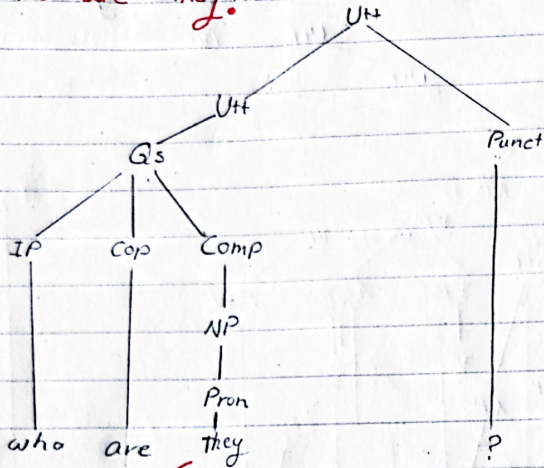 are they.
Utt
Utt
Punct
Qs
IP Cop Comp
NP
Pron
who are they ?